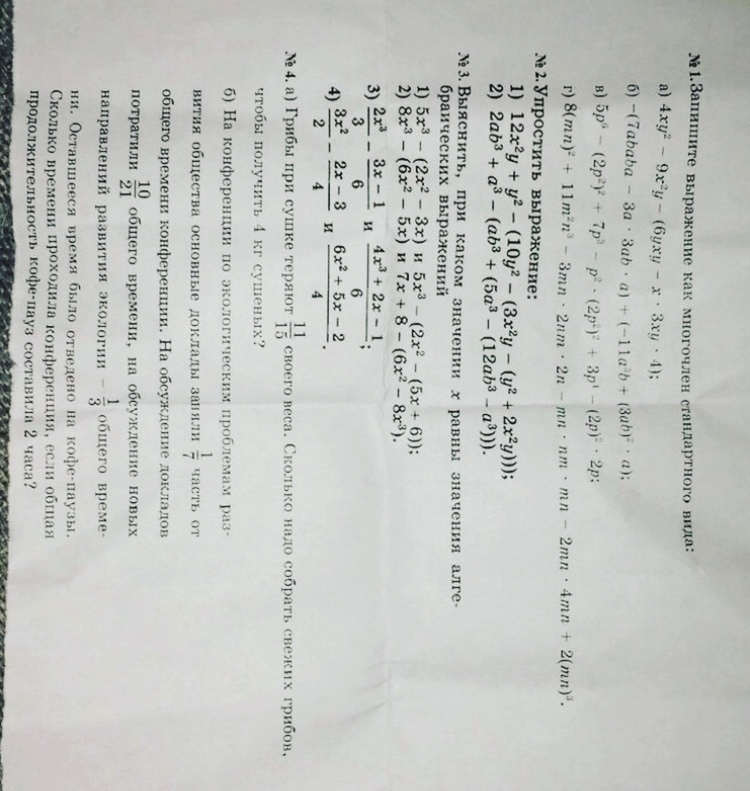 № 1.Запишите выражение как многочлен стандартного вида:
а) 4xy² − 9x²y − (6yxy − x · 3xy · 4);
б) −(7ababa − 3a · 3ab · a) + (−11a³b + (3ab)² · a);
в) 5p⁶ − (2p²)² + 7p³ − p² · (2p²)² + 3p³ − (2p)² · 2p;
г) 8(mn)² + 11m²n³ − 3mn · 2nm · 2n − mn · nm · mn − 2mn · 4mn + 2(mn)³.
№ 2.Упростить выражение:
1) 12x²y + y² − (10y² − (3x²y − (y² + 2x²y)));
2) 2ab³ + a³ − (ab³ + (5a³ − (12ab³ − a³))).
№ 3. Выяснить, при каком значении x равны значения алге-
браических выражений
1) 5x³ − (2x² − 3x) и 5x³ − (2x² − (5x + 6));
2) 8x³ − (6x² − 5x) и 7x + 8 − (6x² − 8x³).
3) 2x³/3 − (3x − 1)/6 и (4x³ + 2x − 1)/6;
4) 3x²/2 − (2x − 3)/4 и (6x² + 5x − 2)/4.
№ 4. а) Грибы при сушке теряют 11/15 своего веса. Сколько надо собрать свежих грибов,
чтобы получить 4 кг сушеных?
б) На конференции по экологическим проблемам раз-
вития общества основные доклады заняли 1/7 часть от
общего времени конференции. На обсуждение докладов
потратили 10/21 общего времени, на обсуждение новых
направлений развития экологии − 1/3 общего време-
ни. Оставшееся время было отведено на кофе-паузы.
Сколько времени проходила конференция, если общая
продолжительность кофе-пауз составила 2 часа?